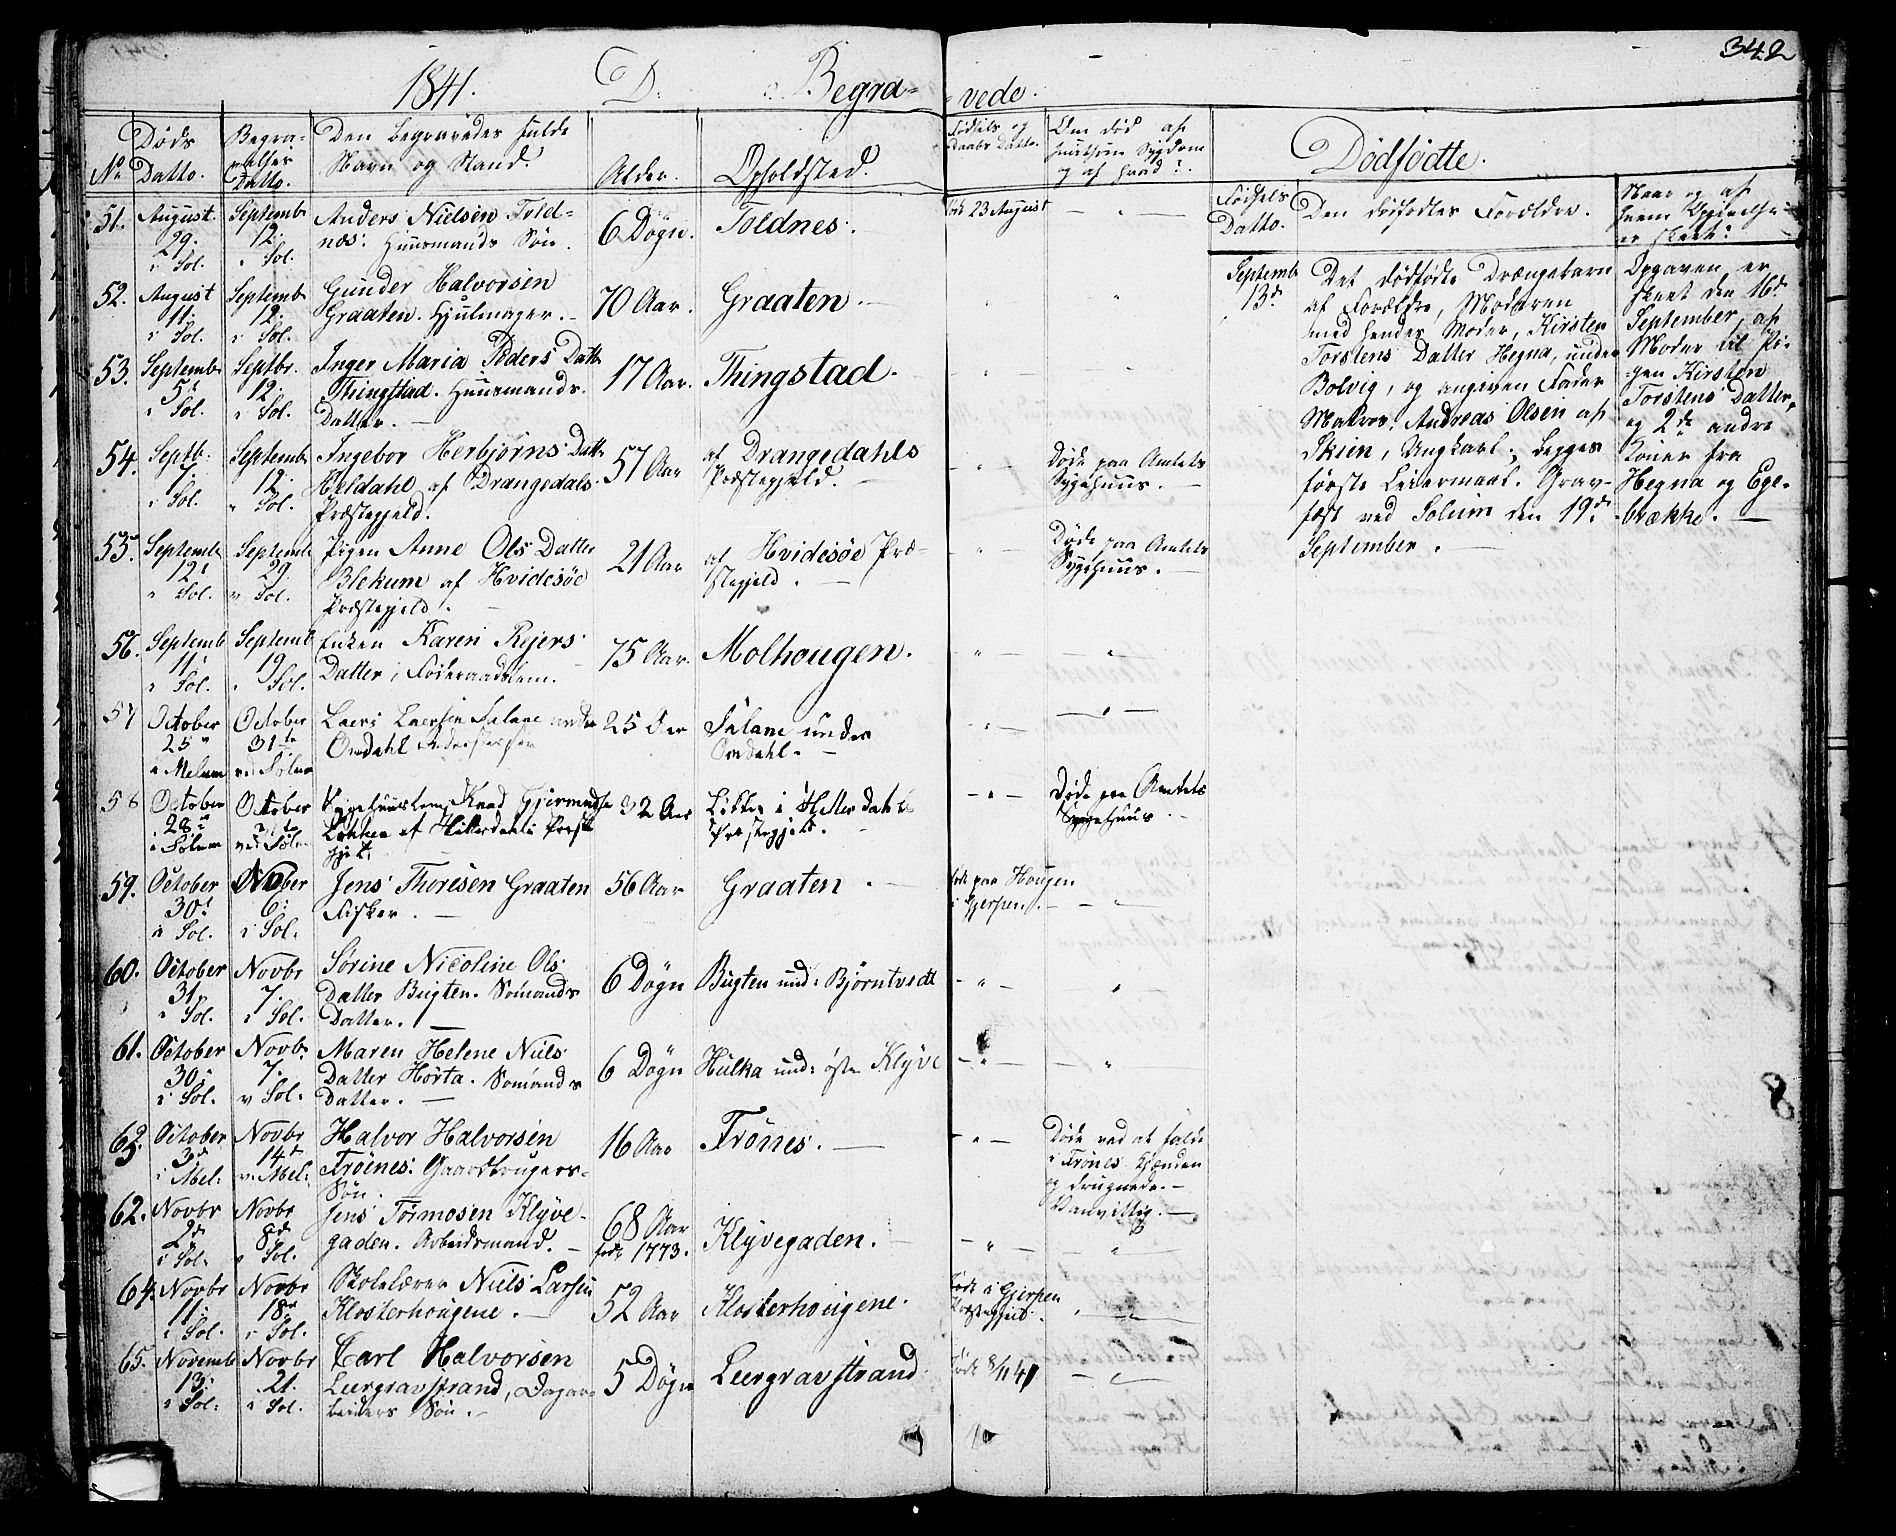 342
1841. D. Begra- vede.
No
Døds Datto.
Begravelses Datto.
Den begravedes fulde Navn og Stand.
Alder.
Opholdsted.
Fødsels og Daabs Datto.
Om død af smitsom Sygdom og af hvad?
Dødfødte.
Fødsels Datto.
Den dødfødtes Forældre.
Naar og af hvem Opgivelsen er skeet?
51. August 29. i Sol. Septemb 12. i Sol.
Anders Nielsen Told-
næs: Huusmands Søn.
6 Døgn. Toldnes. født 23 August
52. August 11. i Sol. Septemb 12. i Sol.
Gunder Halvorsen
Graaten. Hjulmager.
70 Aar. Graaten.
53. Septembr 5. i Sol. Septbr. 12. i Sol.
Inger Maria Peders Datter
Thingstad. Huusmands
Datter.
17 Aar. Thingstad.
54. Septb. 7. i Sol. Septemb 12. v Sol.
Ingebor Herbjørns Datter
Heldahl af Drangedals
Præstegjeld.
57 Aar af Drangedahls
Præstegjeld.
Døde paa Amtets
Sygehuus.
55. Septemb 12. i Sol. Septemb 29. v Sol.
Pigen Anne Ols Datter
Blekum af Hvidesøe
Præstegjeld.
21 Aar af Hvidesøe Præ-
stegjeld.
Døde paa Amtets
Sygehuus.
56. Septemb 11. i Sol. Septemb 19. i Sol.
Enken Karen Rejers
Datter, Føderaadslem.
75 Aar. Molhougen.
57 October 25 i Melum October 31te ved Solum
Lars Larsen Falane under
Omdahl
25 Aar Falane under
Omdahl.
58 October 28 i Solum October ved Solum
Sygehuuslem Knud Gjermundsen
Løkken af Hitterdahls Præste
gjeld.
32 Aar Løkken i Hitterdahls
Præstegjeld.
Døde paa Amtets
Sygehuus.
59. October 30. i Sol. Novber 6. i Sol.
Jens Thoresen Graaten
Fisker.
56 Aar Graaten.
født paa Hougen
i Gjerpen.
60. October 31. i Sol. Novbr 7. i Sol.
Sørine Nicoline Ols
Datter Bugten. Sømands
Datter.
6 Døgn Bugten und: Bjørntvedt
61. October 30. i Sol. Novb. 7. v Sol.
Maren Helene Niels
Datter Hørta. Sømands
Datter.
6 Døgn Hulka und: øste Klyve
63. October 3d i Mel: Novbr 14d v. Mel:
Halvor Halvorsen
Frönes: Gaardbrugers
Søn.
16 Aar Frönes.
Døde ved at falde
i Frönes Kjænden
og drugnede.
Vanvittig.
62. Novbr 2d i Sol. Novbr 8d v Sol.
Jens Tormosen Klyve-
gaden. Arbeidsmand.
68 Aar
født 1773. Klyvegaden.
64. Novbr 11. i Sol. Novbr 18. i Sol.
Skolelærer Niels Larsen
Klosterhougene.
52 Aar Klosterhougene.
født i Gjerpen
Præstegjeld.
65. Novemb 13. i Sol: Novbr 21. i Sol.
Carl Halvorsen
Leergravstrand, Dagar-
beiders Søn.
5 Døgn Leergravstrand født 8/11 41
Septemb 13d
Det dødfødte Drængebarn
af Forældre, Moderen
med hendes Moder, Kirsten
Torstens Datter Hegna, under
Bolvig, og angiven Fader
Matros: Andreas Olsen af
Skien, Ungkarl; begges
første Leiermaal. Grav-
fæst ved Solum den 19d
September.
Opgaven er
skeet den 16d
September, af
Moder til Pi-
gen Kirsten
Torstens Datter,
og 2de andre
Koner fra
Hegna og Ege-
brække.